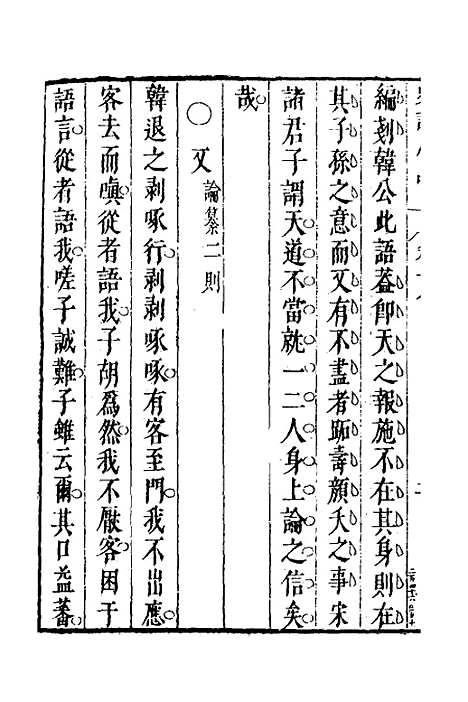 編剗韓公此語葢卽天之報施不在其身則在
其子孫之意而又有不盡者跖壽顏夭之事宋
諸君子謂天道不當就一二人身上論之信矣
哉
○又論纂二則
韓退之剥啄行剥剥啄啄有客至門我不出應
客去而嗔從者語我子胡爲然我不厭客困于
語言從者語我嗟子誠難子雖云爾其口益蕃